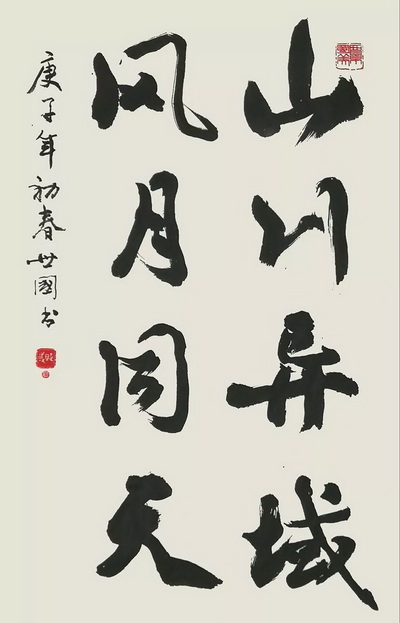 山川异域
风月同天
庚子年初春世国书